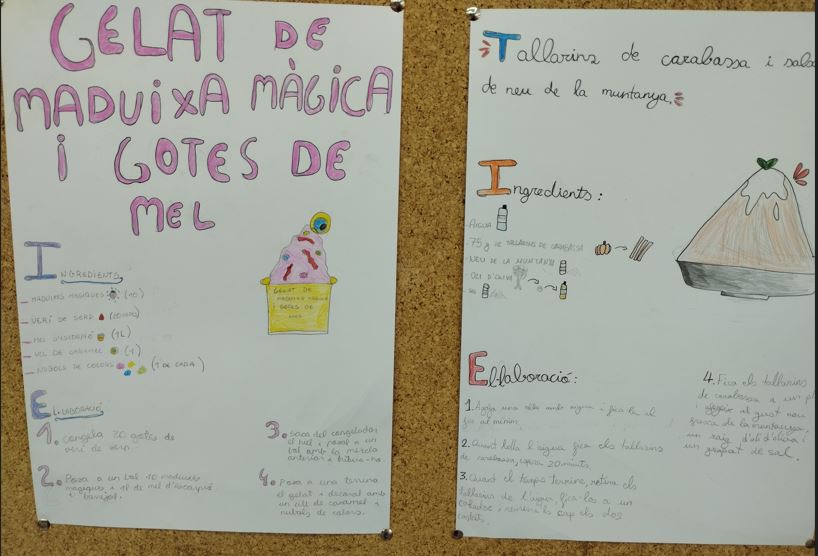 GELAT DE
MADUIXA MÀGICA
I GOTES DE
MEL
INGREDIENTS
MADUIXES MÀGIQUES (10)
VERÍ DE SERP
(1L)
ULL DE CARAMEL (1)
NÚVOLS DE COLORS (1 DE CADA)
GELAT DE
MADUIXA MÀGICA
I GOTES DE
MEL
EL·LABORACIÓ
1. Congela 20 gotes de
verí de serp.
2. Posa a un bol 10 maduixes
màgiques i 1l de mel
i barreja'l.
3. Saca del congelador
el gel i posal a un
bol amb la mescla
anterior i tritura-ho.
4. Posa a una terrina
el gelat i decoral amb
un ull de caramel i
núvols de colors.
Tallarins de carabassa i
de neu de la muntanya.
Ingredients:
AIGUA
75 g DE TALLARINS DE CARABASSA
NEU DE LA MUNTANYA
OLI D'OLIVA
SAL
El·laboració:
1. una olla amb aigua i fica-la al
foc al mínim.
2. Quant l'aigua fica els tallarins
de carabassa, espera 20 minuts.
3. Quant el temps termine, retira els
tallarins de l'aigua, fica-los a un
colador i
4. Fica els tallarins
de carabassa a un
al gust neu
fresca de la muntanya,
un raig d'oli d'oliva i
un grapat de sal.